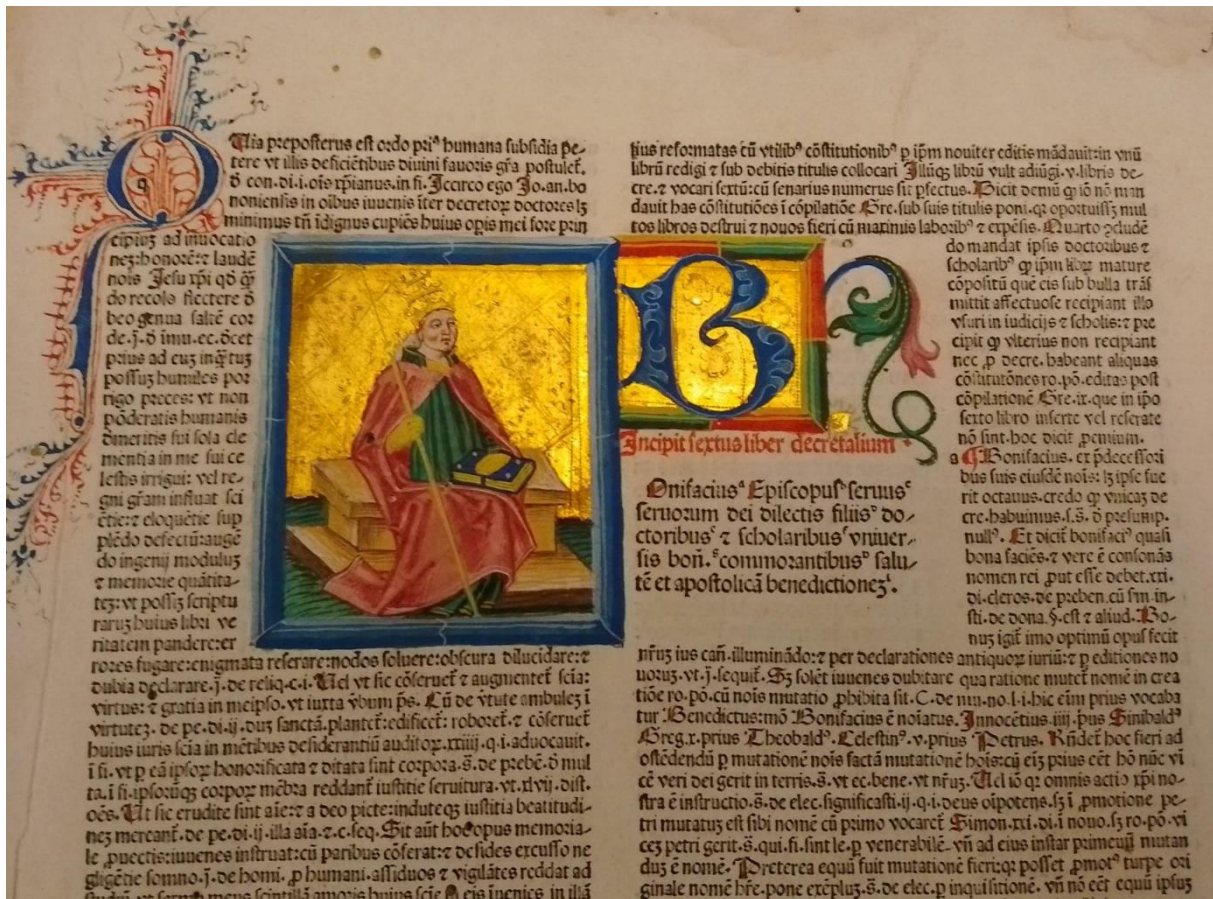 Quia preposterus est ordo priꝰ humana subsidia pe-
tere vt illis deficiētibus diuini fauoris gr̄a postulet̄.
d̄ con.di.i.oīs xp̄ianus.in fi. Iccirco ego Jo.an.bo
noniensis in oībus iuuenis īter decretoꝝ doctores lꝫ
minimus tn̄ īdignus cupiēs huius op̄is mei fore prin
cipiuꝫ ad inuocatio
neꝫ:honorē:⁊ laudē
nois Jesu xp̄i qd̓ qn̄
do recolo flectere d̓
beo genua saltē cor
de.j.d̓ imu.ec.dcet
prius ad euꝫ inq̄tuꝫ
possuꝫ humiles por
rigo preces: vt non
pōderatis humanis
dmeritis sui sola cle
mentia in me sui ce
lestis irrigui: vel re-
gni gr̄am influat sci
ētie:⁊ eloquētie sup
plēdo defectū:augē
do ingenij moduluꝫ
⁊ memorie quātita-
teꝫ:vt possiꝫ scriptu
raruꝫ huius libri ve
ritatem pandere:er
rores fugare:enigmata reserare:nodos soluere:obscura dilucidare:⁊
dubia declarare.j.de reliq̄.c.i. Uel vt sic cōseruet̄ ⁊ augmentet̄ scīa:
virtus:⁊ gratia in meipso.vt iuxta v̓bum p̄s. Cū de v̓tute ambuleꝫ ī
virtuteꝫ.de pe.di.ij.duꝫ sanctā.plantet̄:edificet̄:roboret̄.⁊ cōseruet̄
huius iuris scīa in mētibus desiderantiū auditoꝝ.xxiiij.q.i.aduocauit.
ī fi.vt ꝑ eā ipsoꝝ honorificata ⁊ ditata sint corpora.s̄.de prebē.d̓ mul
ta.ī fi.ipsorūqꝫ corpoꝝ mēbra reddant̄ iustitie seruitura.vt.xlvij.dist.
oēs. Ut sic erudite sint aīe:⁊ a deo picte:induteqꝫ iustitia beatitudi-
neꝫ mereant̄.de pe.di.ij.illa aīa.⁊.c.seq̄. Sit aūt hoc opus memoria-
le ꝓuectis:iuuenes instruat:cū paribus cōferat:⁊ desides excusso ne
gligētie somno.j.de homi.ꝓ humani.assiduos ⁊ vigilātes reddat ad
tius reformatas cū vtilibꝰ cōstitutionibꝰ ꝑ ip̄m nouiter editis mādauit:in vnū
librū redigi ⁊ sub debitis titulis collocari Illūqꝫ librū vult adiūgi.v.libris de-
cre.⁊ vocari sextū:cū senarius numerus sit ꝑfectus. Dicit demū qꝫ iō nō man
dauit has cōstitutiōes ī cōpilatiōe Gre.sub suis titulis poni.qꝛ oportuissꝫ mul
tos libros destrui ⁊ nouos fieri cū maximis laboribꝰ ⁊ expēsis. Quarto ꝯcludē
do mandat ipsis doctoribus ⁊
scholaribꝰ qꝫ ip̄m libꝝ mature
cōpositū que eis sub bulla trās
mittit affectuose recipiant illo
vsuri in iudicijs ⁊ scholis:⁊ pre
cipit qꝫ vlterius non recipiant
nec ꝓ decre.habeant aliquas
cōstitutōnes ro.pō.editas post
cōpilationē Gre.ix.que in ip̄o
sexto libro inserte vel reserate
nō sint.hoc dicit ꝓemium.
a ¶Bonifacius.ex p̄decessori
bus suis eiusdē nois: lꝫ ip̄e fue
rit octauus.credo qꝫ vnicaꝫ de
cre.habuimus.s̄.s.d̓ presump.
nullꝰ. Et dicit̄ bonifaciꝰ quasi
bona faciēs.⁊ vere ē consonās
nomen rei ꝓut esse debet.xxi.
di.cleros.de preben.cū s̄m in-
sti.de dona.§.est ⁊ aliud. Bo-
nuꝫ igit̄ imo optimū opus fecit
B
Incipit sextus liber decretalium
Onifaciusᵃ Episcopusᵇ seruusᶜ
seruorum dei dilectis filiisᵈ do-
ctoribusᵉ ⁊ scholaribusᶠ vniuer-
sis boñ.ᵍcommorantibusʰ salu-
tē et apostolicā benedictioneꝫⁱ.
nr̄uꝫ ius can̄.illuminādo:⁊ per declarationes antiquoꝝ iuriū:⁊ ꝑ editiones no
uoruꝫ.vt.j.sequit̄. Sꝫ solēt iuuenes dubitare qua ratione mutet̄ nomē in crea
tiōe ro.pō.cū nois mutatio ꝓhibita sit.C.de mu.no.l.i.hic eīm prius vocaba
tur Benedictus:mō Bonifacius ē noīatus. Innocētius.iiij.prius Sinibaldꝰ
Greg.x.prius Theobaldꝰ. Celestinꝰ.v.prius Petrus. Rn̄det̄ hoc fieri ad
ostēdendū ꝑ mutationē nois factā mutationē hois:cū eīꝫ prius eēt hō nūc vi
cē veri dei gerit in terris.s̄.vt ec.bene.vt nr̄uꝫ. Uel iō qꝛ omnis actio xp̄i no-
stra ē instructio.s̄.de elec.significasti.ij.q.i.deus oīpotens.sꝫ ī ꝓmotione pe-
tri mutatuꝫ est sibi nomē cū primo vocaret̄ Simon.xxi.di.ī nouo.sꝫ ro.pō.vi
ceꝫ petri gerit.s̄.qui fi.sint le.ꝑ venerabilē.vn̄ ad eius instar primeuū mutan
duꝫ ē nomē. Preterea equū fuit mutationē fieri:qꝛ posset ꝓmotꝰ turpe ori
ginale nomē hr̄e.pone exēpluꝫ.s̄.de elec.ꝑ inquisitionē. vn̄ nō eēt equū ipsuꝫ